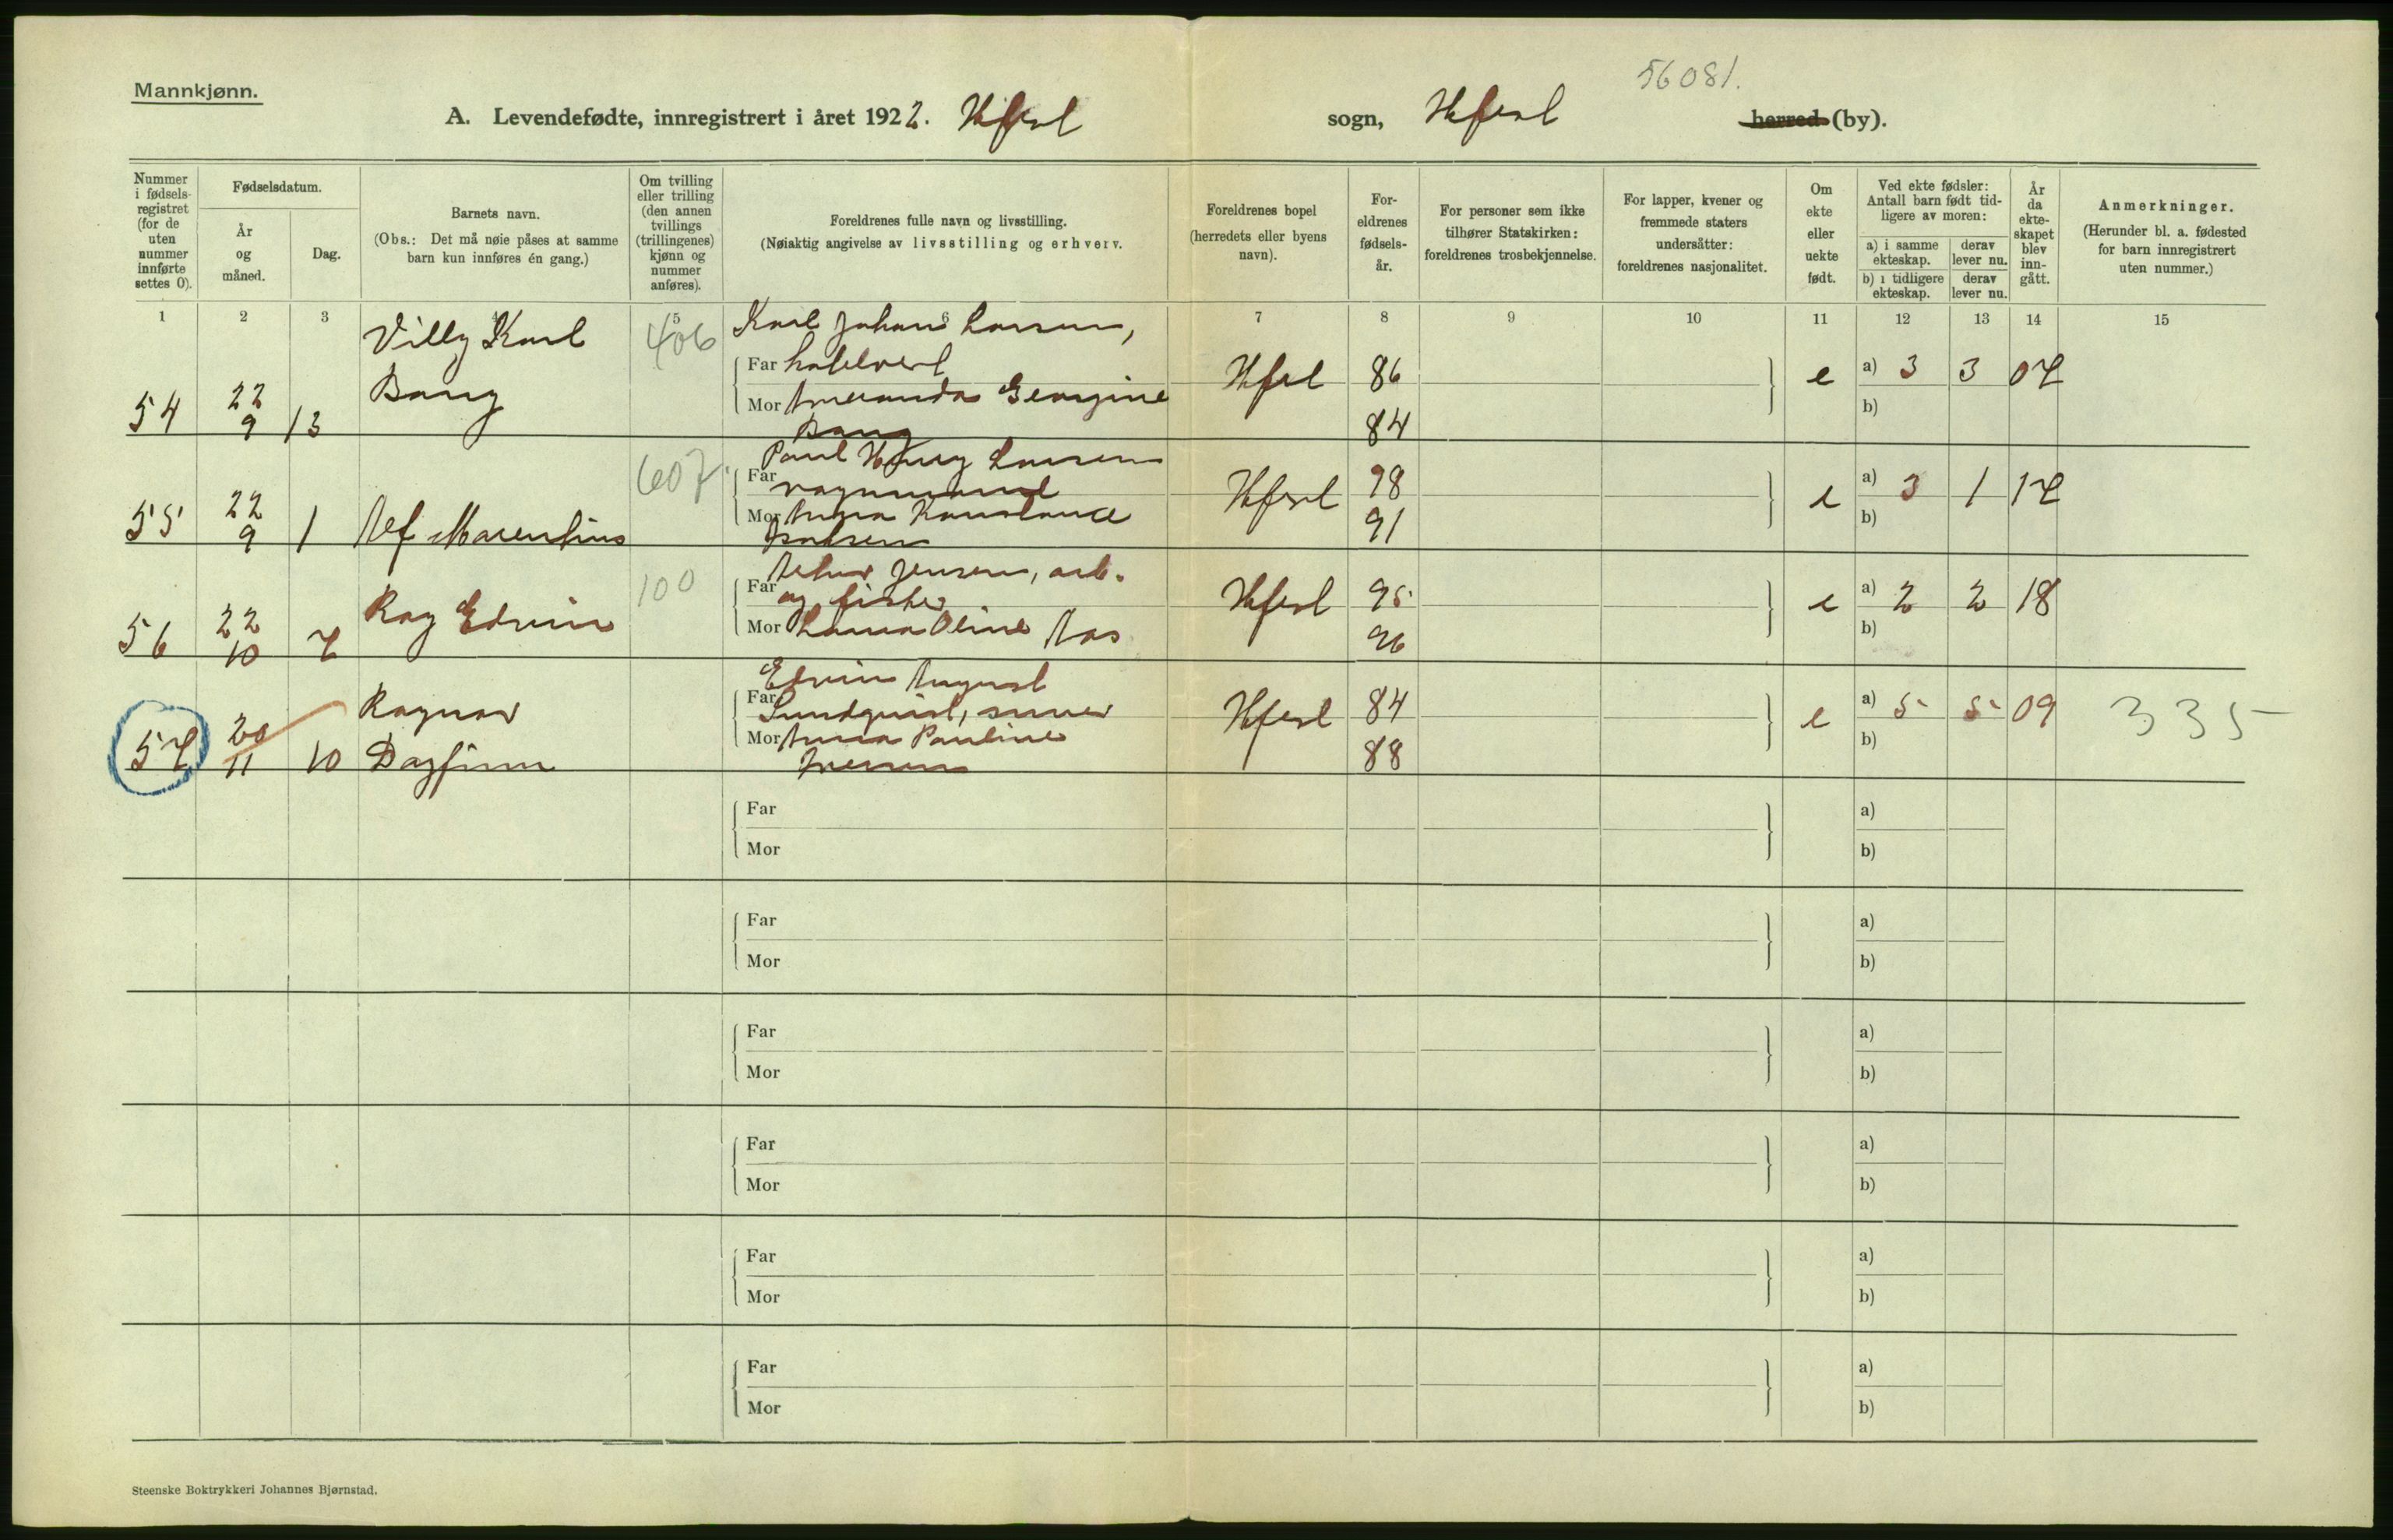 Mannkjønn.
56081.
A. Levendefødte, innregistrert i året 1922. Hfest sogn, Hfest herred (by).
Nummer i fødselsregistret (for de uten nummer innførte settes 0).
Fødselsdatum.
År og måned.
Dag.
Barnets navn.
(Obs.: Det må nøie påses at samme barn kun innføres én gang.)
Om tvilling eller trilling (den annen tvillings (trillingenes) kjønn og nummer anføres).
Foreldrenes fulle navn og livsstilling.
(Nøiaktig angivelse av livsstilling og erhverv.
Foreldrenes bopel (herredets eller byens navn).
Foreldrenes fødselsår.
For personer som ikke tilhører Statskirken: foreldrenes trosbekjennelse.
For lapper, kvener og fremmede staters undersåtter: foreldrenes nasjonalitet.
Om ekte eller uekte født.
Ved ekte fødsler: Antall barn født tidligere av moren:
a) i samme ekteskap.
derav lever nu.
b) i tidligere ekteskap.
derav lever nu.
År da ekteskapet blev inngått.
Anmerkninger.
(Herunder bl. a. fødested for barn innregistrert uten nummer.)
1 2 3 4 5 6 7 8 9 10 11 12 13 14 15
54 22 9 13 Villy Karl Bang 406
Karl Johans Larsen,
Far hotelvert
Mor Amanda Georgine
Bang
Hfest 86 84 e a) 3 3 07
b)
55 22 9 1 Alf Marentius 607.
Paul Henry Larsen
Far vognmand
Mor Anna Konstance
Hfest 98 91 e a) 3 1 17
b)
56 22 10 7 Ray Edvin 100
Arthur Jensen, arb.
Far og fisker
Mor Laura Oline Aas
Hfest 95 96 e a) 2 2 18
b)
57 20 11 10 Ragnar Dagfinn
Edvin August
Far Sundquist, snner
Mor Anna Pauline
Iversen
Hfest 84 88 e a) 5 5 09 335
b)
Far a)
Mor b)
Far a)
Mor b)
Far a)
Mor b)
Far a)
Mor b)
Far a)
Mor b)
Far a)
Mor b)
Steenske Boktrykkeri Johannes Bjørnstad.